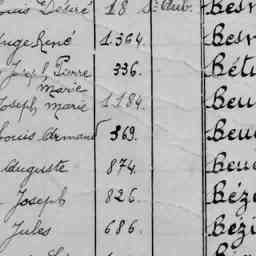 ouis Désiré 18 St Aub. Besn
Ange René 1.364. Besn
Joseph Pierre Marie 336. Bétu
Joseph Marie 1.184. Beu
Louis Armand 369. Beu
Auguste 874. Beu
Joseph 826. Béz
Jules 686. Bézi